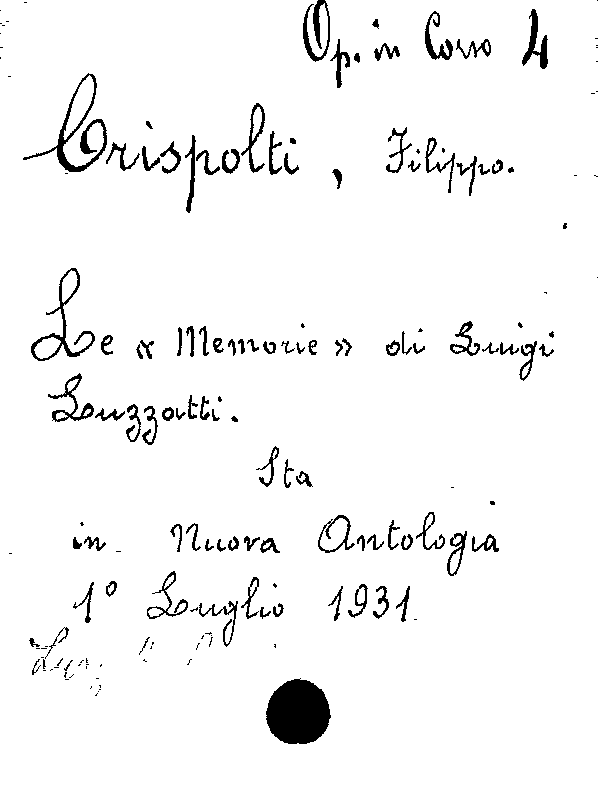 Op. in Corso 4
Crispolti, Filippo.
Le « Memorie » di Luigi
Luzzatti.
Sta
in Nuova Antologia
1º Luglio 1931